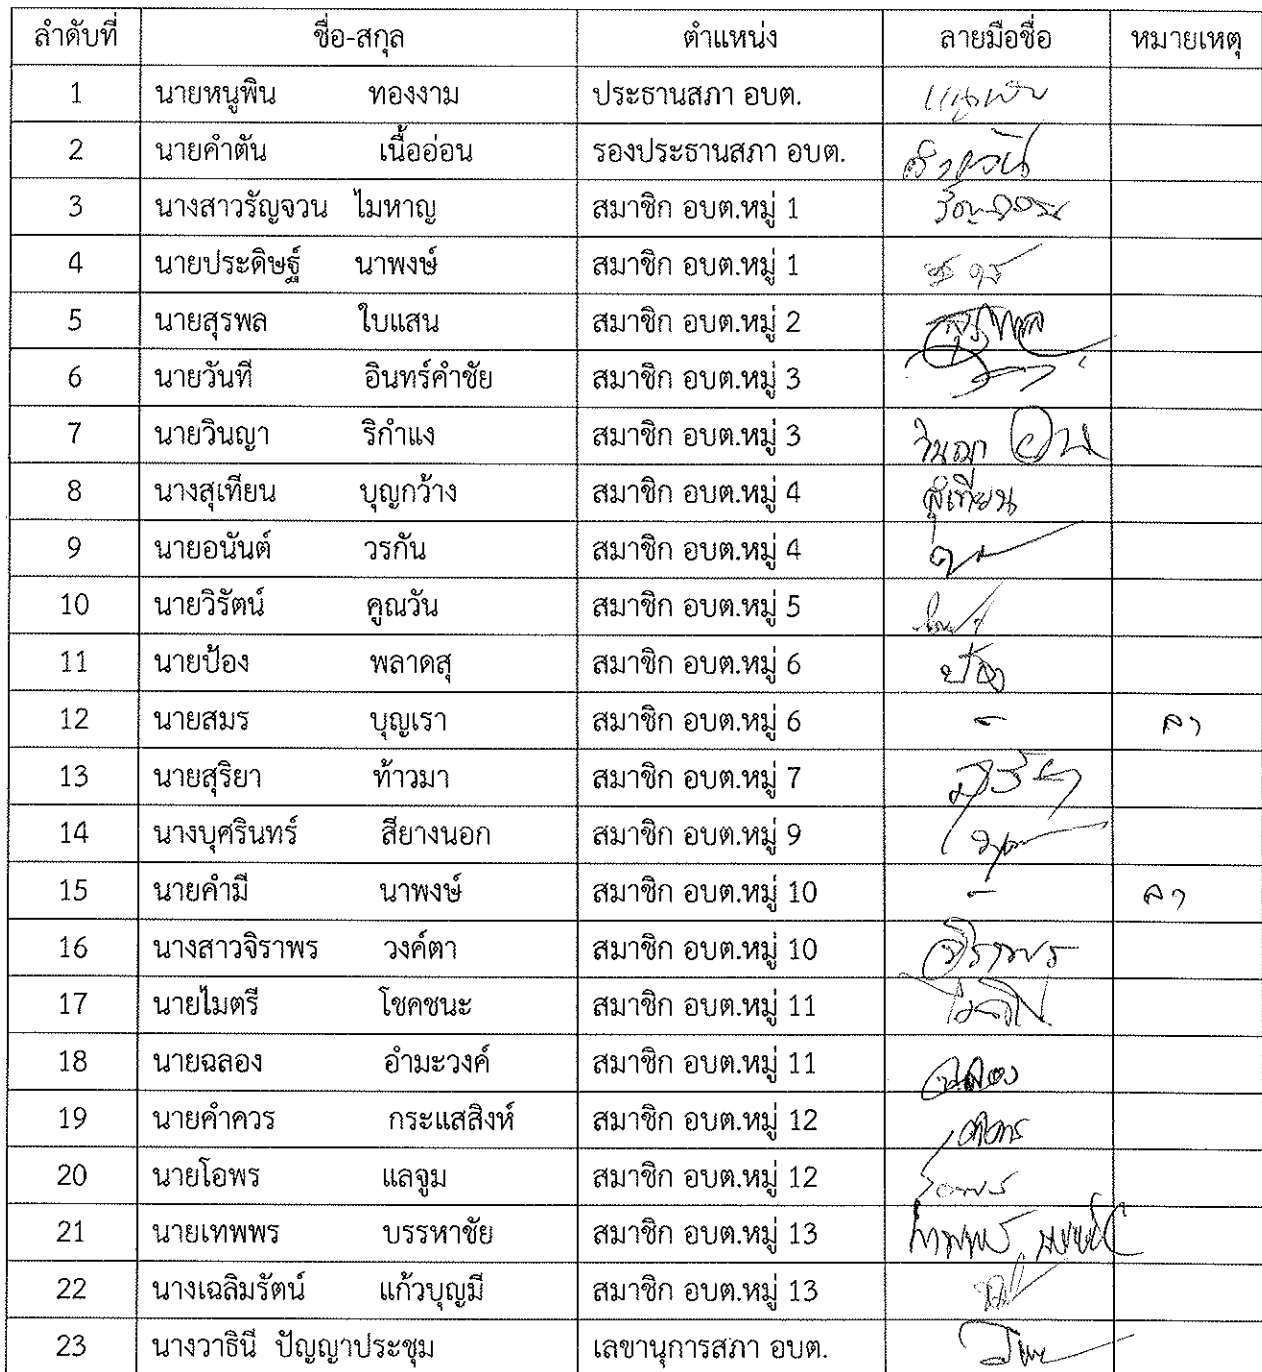 ลำดับที่ ชื่อ-สกุล ตำแหน่ง ลายมือชื่อ หมายเหตุ
1 นายหนูพิน ทองงาม ประธานสภา อบต.
2 นายคำตัน เนื้ออ่อน รองประธานสภา อบต.
3 นางสาวรัญจวน ไมหาญ สมาชิก อบต.หมู่ 1
4 นายประดิษฐ์ นาพงษ์ สมาชิก อบต.หมู่ 1
5 นายสุรพล ใบแสน สมาชิก อบต.หมู่ 2 สุรพล
6 นายวันที อินทร์คำชัย สมาชิก อบต.หมู่ 3
7 นายวินญา ริกำแง สมาชิก อบต.หมู่ 3 วินญา
8 นางสุเทียน บุญกว้าง สมาชิก อบต.หมู่ 4 สุเทียน
9 นายอนันต์ วรกัน สมาชิก อบต.หมู่ 4
10 นายวิรัตน์ คูณวัน สมาชิก อบต.หมู่ 5
11 นายป้อง พลาดสุ สมาชิก อบต.หมู่ 6 ป้อง
12 นายสมร บุญเรา สมาชิก อบต.หมู่ 6 - ลา
13 นายสุริยา ท้าวมา สมาชิก อบต.หมู่ 7 สุริยา
14 นางบุศรินทร์ สียางนอก สมาชิก อบต.หมู่ 9
15 นายคำมี นาพงษ์ สมาชิก อบต.หมู่ 10 - ลา
16 นางสาวจิราพร วงค์ตา สมาชิก อบต.หมู่ 10 จิราพร
17 นายไมตรี โชคชนะ สมาชิก อบต.หมู่ 11 ไมตรี
18 นายฉลอง อำมะวงค์ สมาชิก อบต.หมู่ 11 ฉลอง
19 นายคำควร กระแสสิงห์ สมาชิก อบต.หมู่ 12
20 นายโอพร แลจูม สมาชิก อบต.หมู่ 12 โอพร
21 นายเทพพร บรรหาชัย สมาชิก อบต.หมู่ 13
22 นางเฉลิมรัตน์ แก้วบุญมี สมาชิก อบต.หมู่ 13
23 นางวาธินี ปัญญาประชุม เลขานุการสภา อบต.